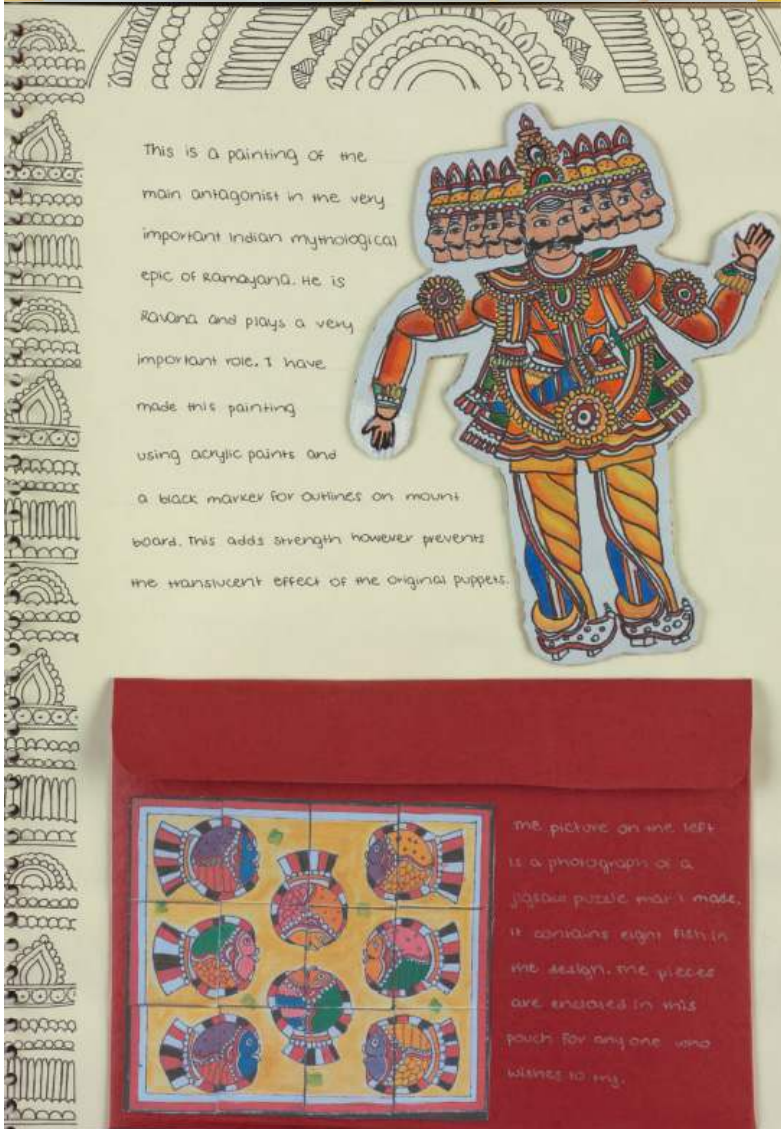 This is a painting of the
main antagonist in the very
important Indian mythological
epic of Ramayana. He is
Ravana and plays a very
important role. I have
made this painting
using acrylic paints and
a black marker for outlines on mount
board. This adds strength however prevents
the translucent effect of the original puppets.
The picture on the left
is a photograph of a
jigsaw puzzle that I made.
It contains eight fish in
the design. The pieces
are enclosed in this
pouch for any one who
wishes to try.